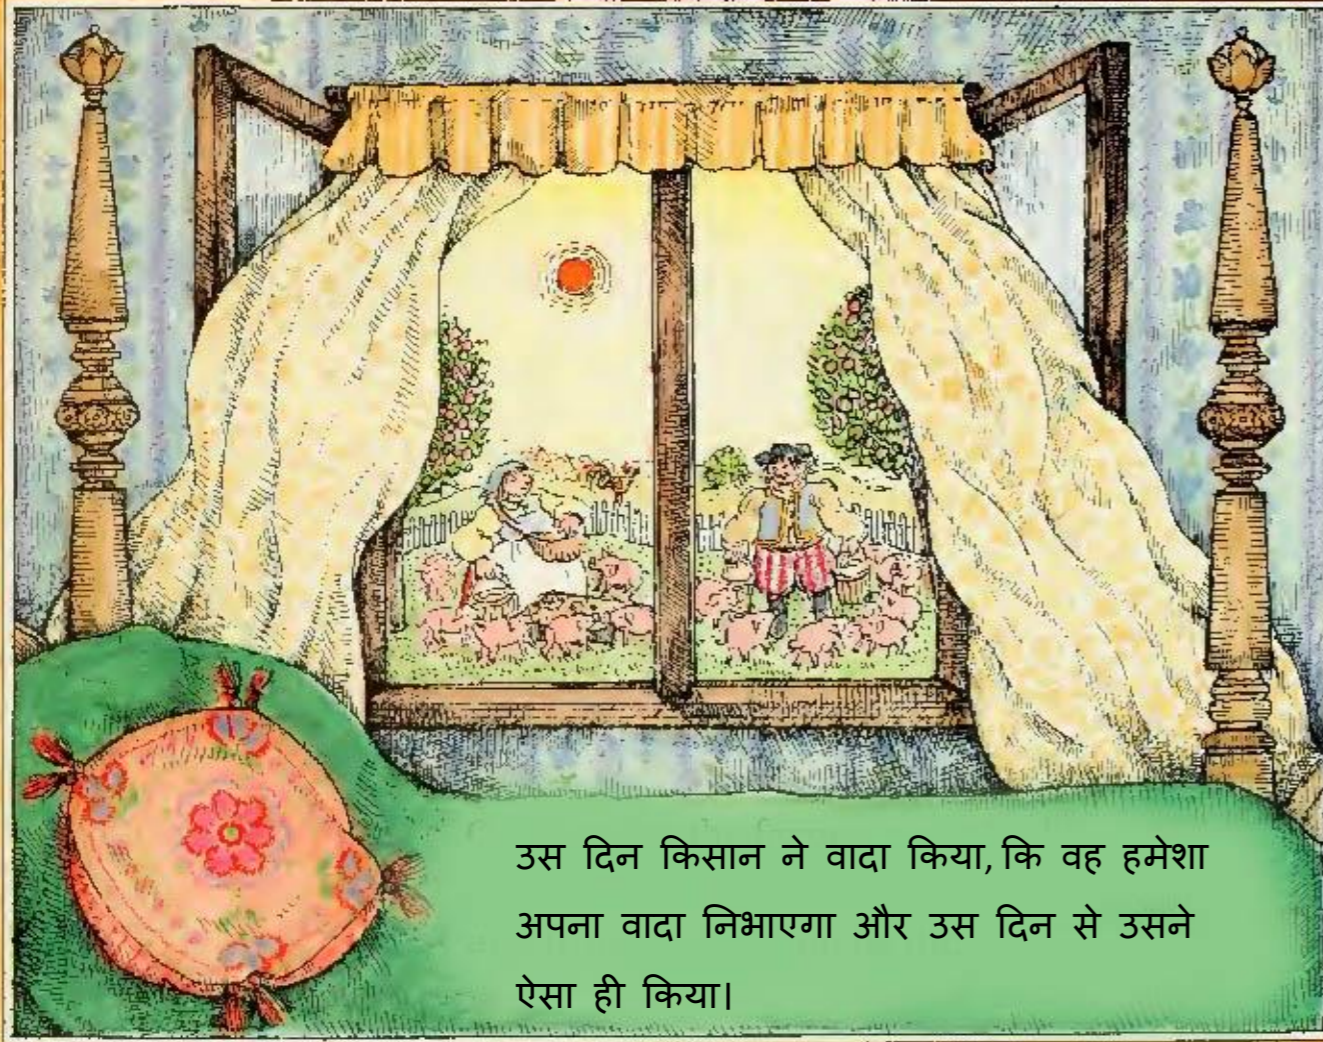 उस दिन किसान ने वादा किया, कि वह हमेशा
अपना वादा निभाएगा और उस दिन से उसने
ऐसा ही किया।